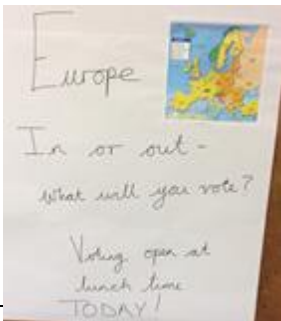 Europe
In or out -
what will you vote?
Voting open at
lunch time
TODAY!